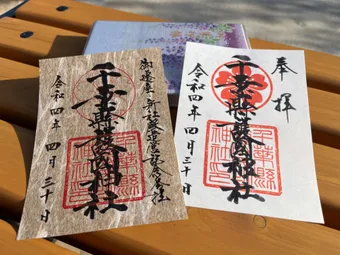 御遷座 新社殿
千葉縣護國神社
令和四年 四月 三十日
奉拝
千葉縣護國神社
令和四年 四月 三十日
千葉縣
護國
神社